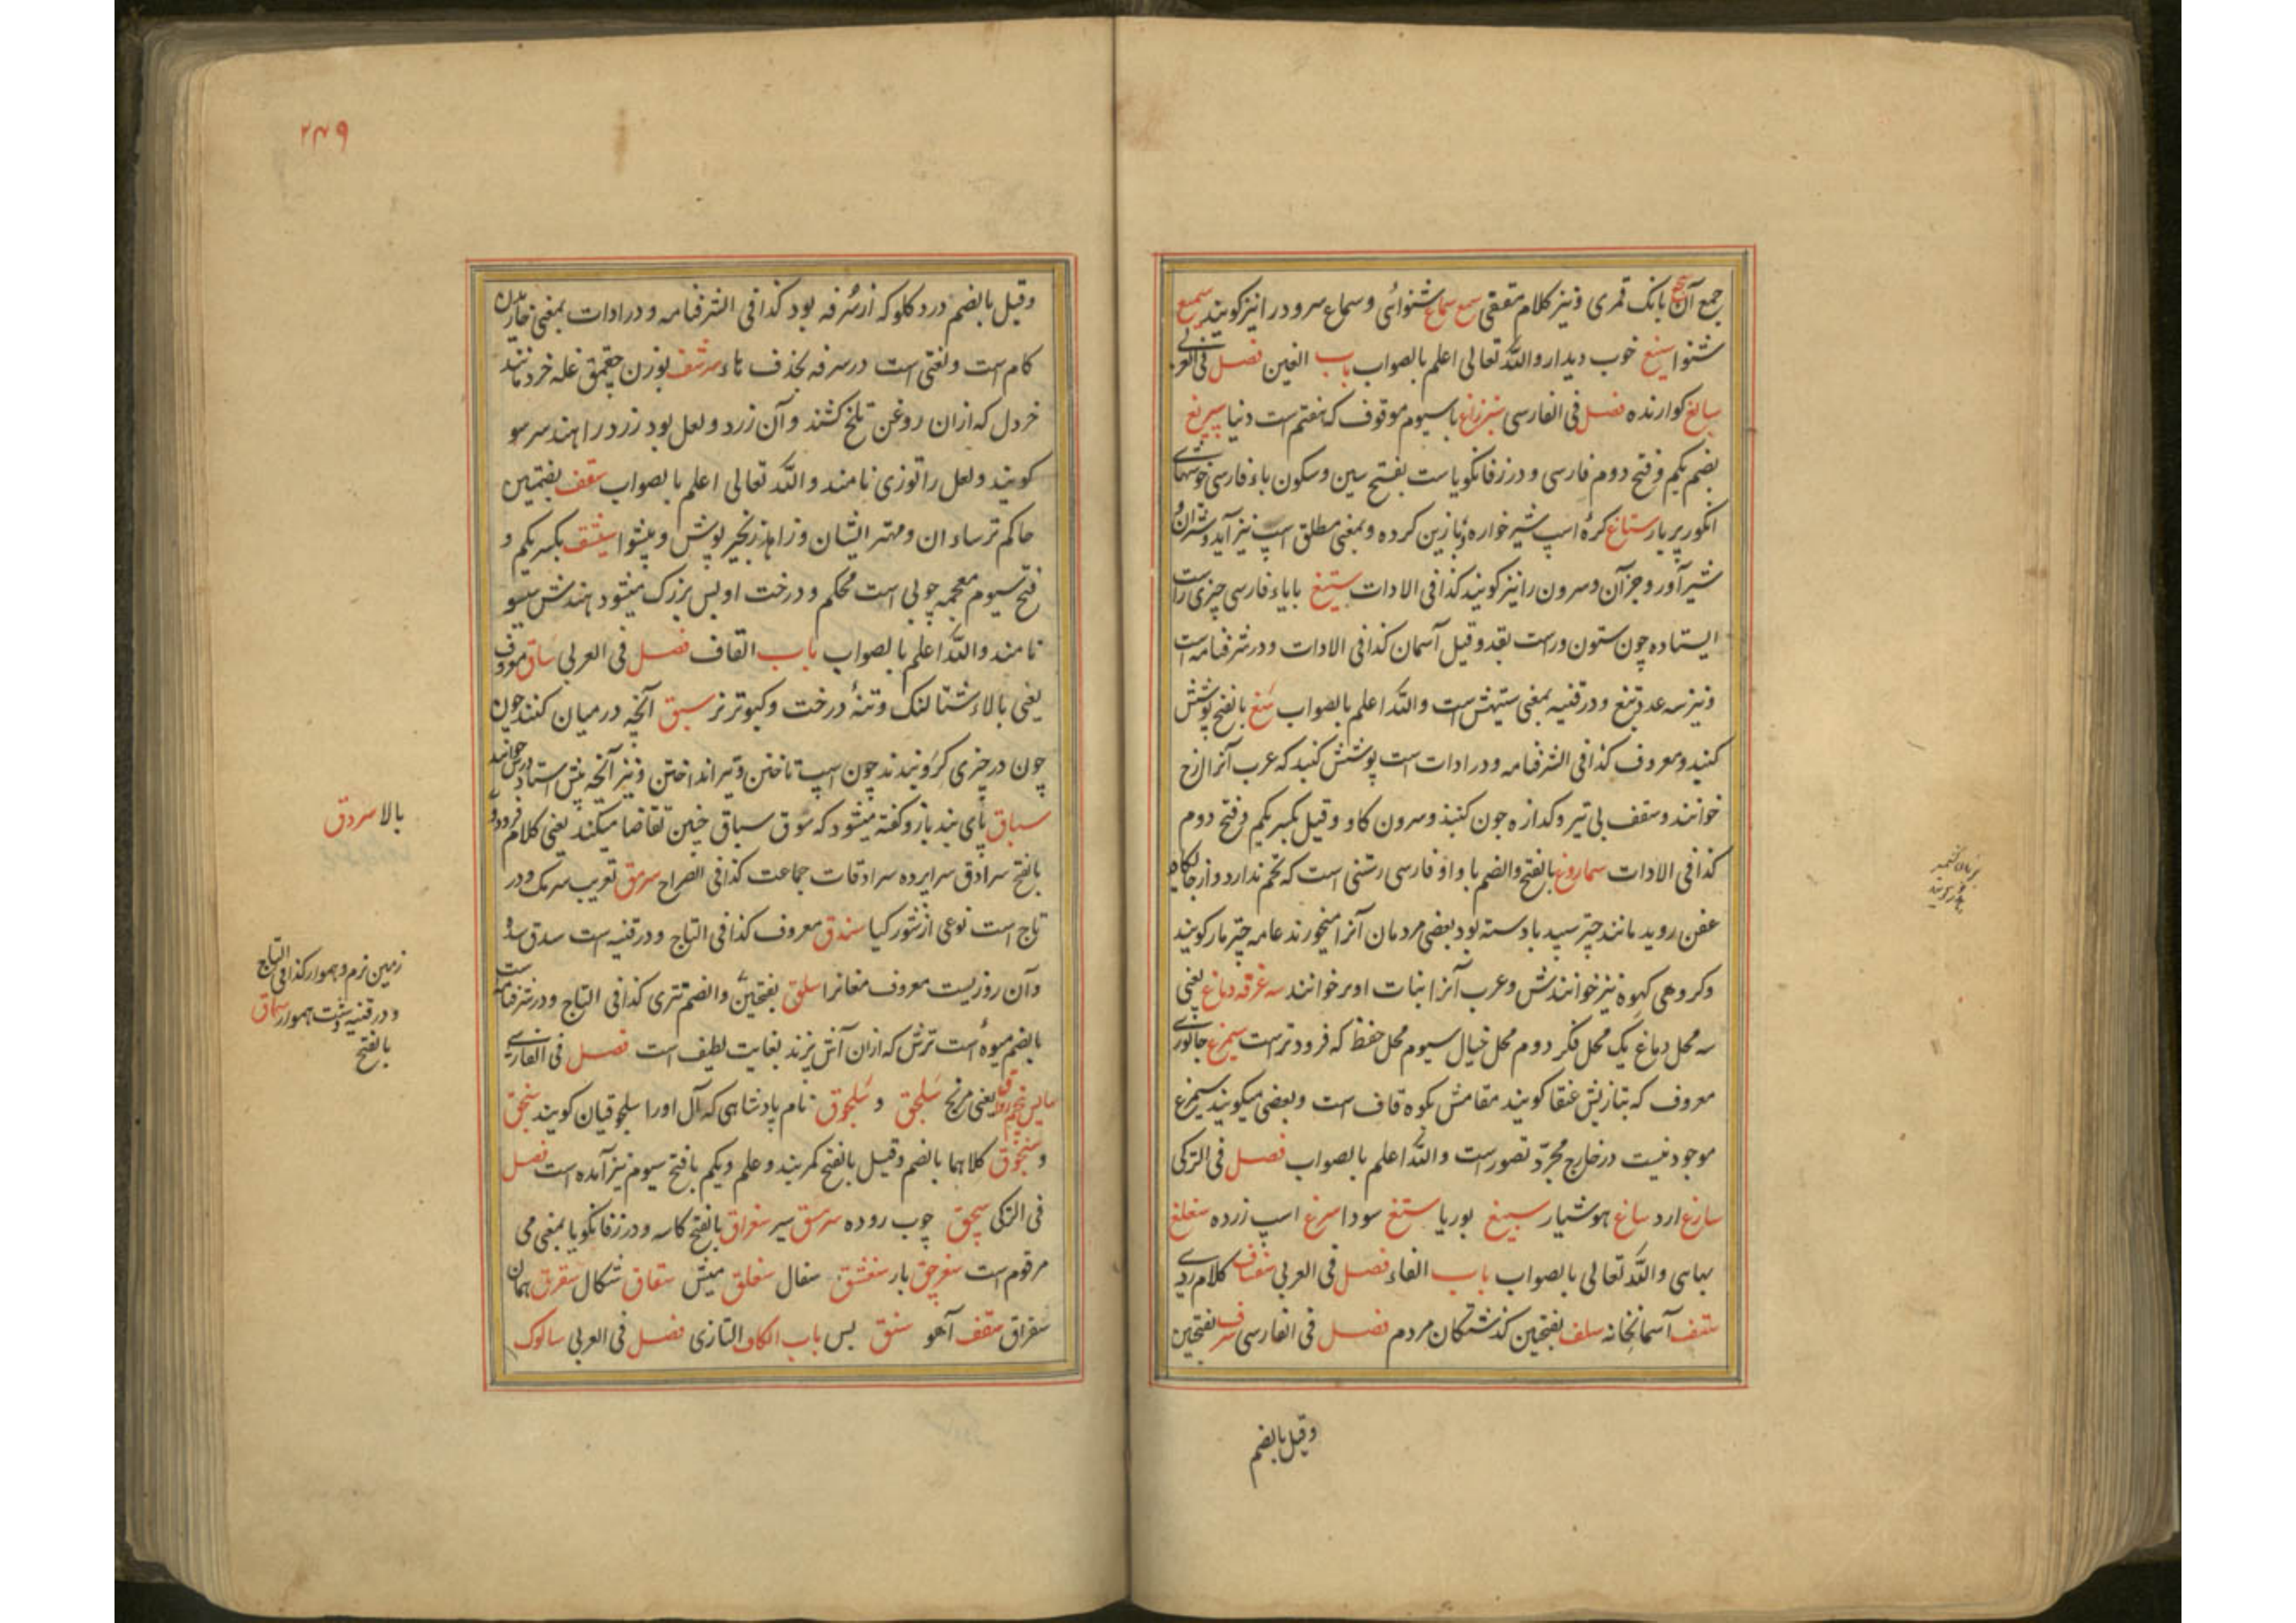 جمع آن بانک قمری و نیز کلام مقفی سمع سماع شنوائی و سماع سرود را نیز کویند سمیع
شنوا سنع خوب دیدار والله تعالی اعلم بالصواب باب الغین فصل فی العربی
سالغ کوارنده فصل فی الفارسی با سیوم موقوف که هفتم است دنیا سپریغ
بضم یکم و فتح دوم فارسی و در زفانکویا ست بفتح سین و سکون باء فارسی خوشهای
انکور پر بار ستاغ کرهٔ اسپ شیر خواره و نا زین کرده و بمعنی مطلق اسپ نیز آید و شتران
شیر آور و جز آن و سرون را نیز کویند کذا فی الادات ستیغ بایاء فارسی چیزی راست
ایستاده چون ستون و راست بقد و قیل آسمان کذا فی الادات و در شرفنامه است
و نیز سه عدد تیغ و در قنیه بمعنی ستیهش است والله اعلم بالصواب سغ بالفتح پوشش
کنبد و معروف کذا فی الشرفنامه و در ادات است پوشش کنبد که عرب آنرا ازج
خوانند و سقف بی تیر و کدازه چون کنبد و سرون کاو و قیل بکسر یکم و فتح دوم
کذا فی الادات سماروغ بالفتح والضم با واو فارسی رستنی است که تخم ندارد و از جایکاه
عفن روید مانند چتر سپید با دسته بود بعضی مردمان آنرا میخورند عامه چتر مار کویند
و کروهی کهوه نیز خوانندش و عرب آنرا بنات اوبر خوانند سه غرفه دماغ یعنی
سه محل دماغ یک محل فکر دوم محل خیال سیوم محل حفظ که فرود تر است سیمرغ جانوری
معروف که بتازیش عنقا کویند مقامش بکوه قاف است و بعضی میکویند سیمرغ
موجود نیست در خارج مجرد تصور است والله اعلم بالصواب فصل فی الترکی
سازغ ارد ساغ هوشیار سیغ بوریا ستغ سودا سرغ اسپ زرده سغلغ
بهاسی والله تعالی بالصواب باب الفاء فصل فی العربی سفساف کلام ردی
سقف آسمانخانه سلف بفتحین کذشتکان مردم فصل فی الفارسی سرف بفتحین
وقیل بالضم
۲۴۹
وقیل بالضم درد کلو که از سرفه بود کذا فی الشرفنامه و در ادات بمعنی خاریدن
کام است و لغتی است در سرفه بحذف هاء سرشف بوزن چقمق غله خرد مانند
خردل که ازان روغن تلخ کشند و آن زرد و لعل بود زرد را هند سرسو
کویند و لعل را توزی نامند والله تعالی اعلم بالصواب سقف بضمتین
حاکم ترسا ان و مهتر ایشان و زاهد زنجیر پوش و پیشوا سیشف بکسر یکم و
فتح سیوم معجمه چوبی است محکم و درخت او بس بزرک میشود هندش سیسو
نامند والله اعلم بالصواب باب القاف فصل فی العربی ساق معروف
یعنی بالاء شتالنک و تنهٔ درخت و کبوتر نر سبق آنچه در میان کنند چون
چون در چیزی کرو بندند چون اسپ تاختن و تیر انداختن و نیز آنچه پیش استاد درس خوانند
سباق پای بند باز و کفته میشود که سوق سباق چنین تقاضا میکند یعنی کلام فرود و
بالا سردق
بالفتح سرادق سراپرده سرادقات جماعت کذا فی الصراح سرمق تعریب سرمک و در
تاج است نوعی از شور کیا سندق معروف کذا فی التاج و در قنیه است سدق سده
و آن روزیست معروف مغانرا سلق بفتحین والضم تتری کذا فی التاج و در شرفنامه است
زمین نرم و هموار کذا فی التاج
و در قنیه دشت هموار سماق
بالفتح
بالضم میوهٔ است ترش که ازان آش پزند بغایت لطیف است فصل فی الفارسی
یعنی مریخ سلجق و سلجوق نام پادشاهی که آل اورا سلجوقیان کویند سنجق
و سنجوق کلاهما بالضم و قیل بالفتح کمربند و علم و یکم با فتح سیوم نیز آمده است فصل
فی الترکی سجق چوب روده سرمسق سیر سغراق بالفتح کاسه و در زفانکویا بمعنی می
مرقوم است سغرجق بار سغشق سفال سغلق میش سقاق شکال سقرق همان
سغراق سقف آهو سنق بس باب الکاف التازی فصل فی العربی سالوک